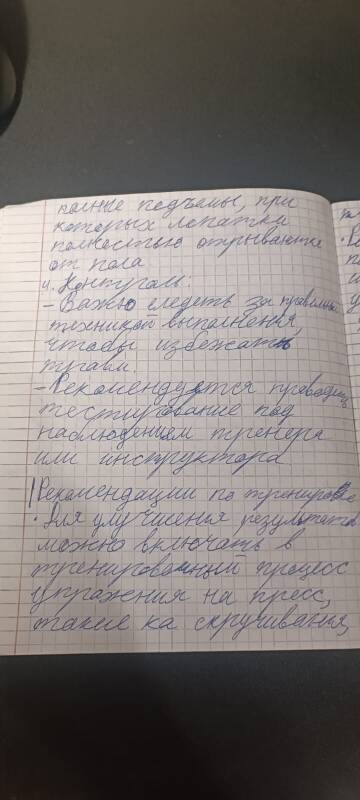 полные подъемы, при
которых лопатки
полностью отрываются
от пола
4. Контроль:
- Важно следеть за правильн
техникой выполнения,
чтобы избежать
травм.
- Рекомендуется проводить
тестирование под
наблюдением тренера
или инструктора
Рекомендации по тренировке
• Для улучшения результата
можно включать в
тренировочный процесс
упражнения на пресс,
такие ка скручивания,